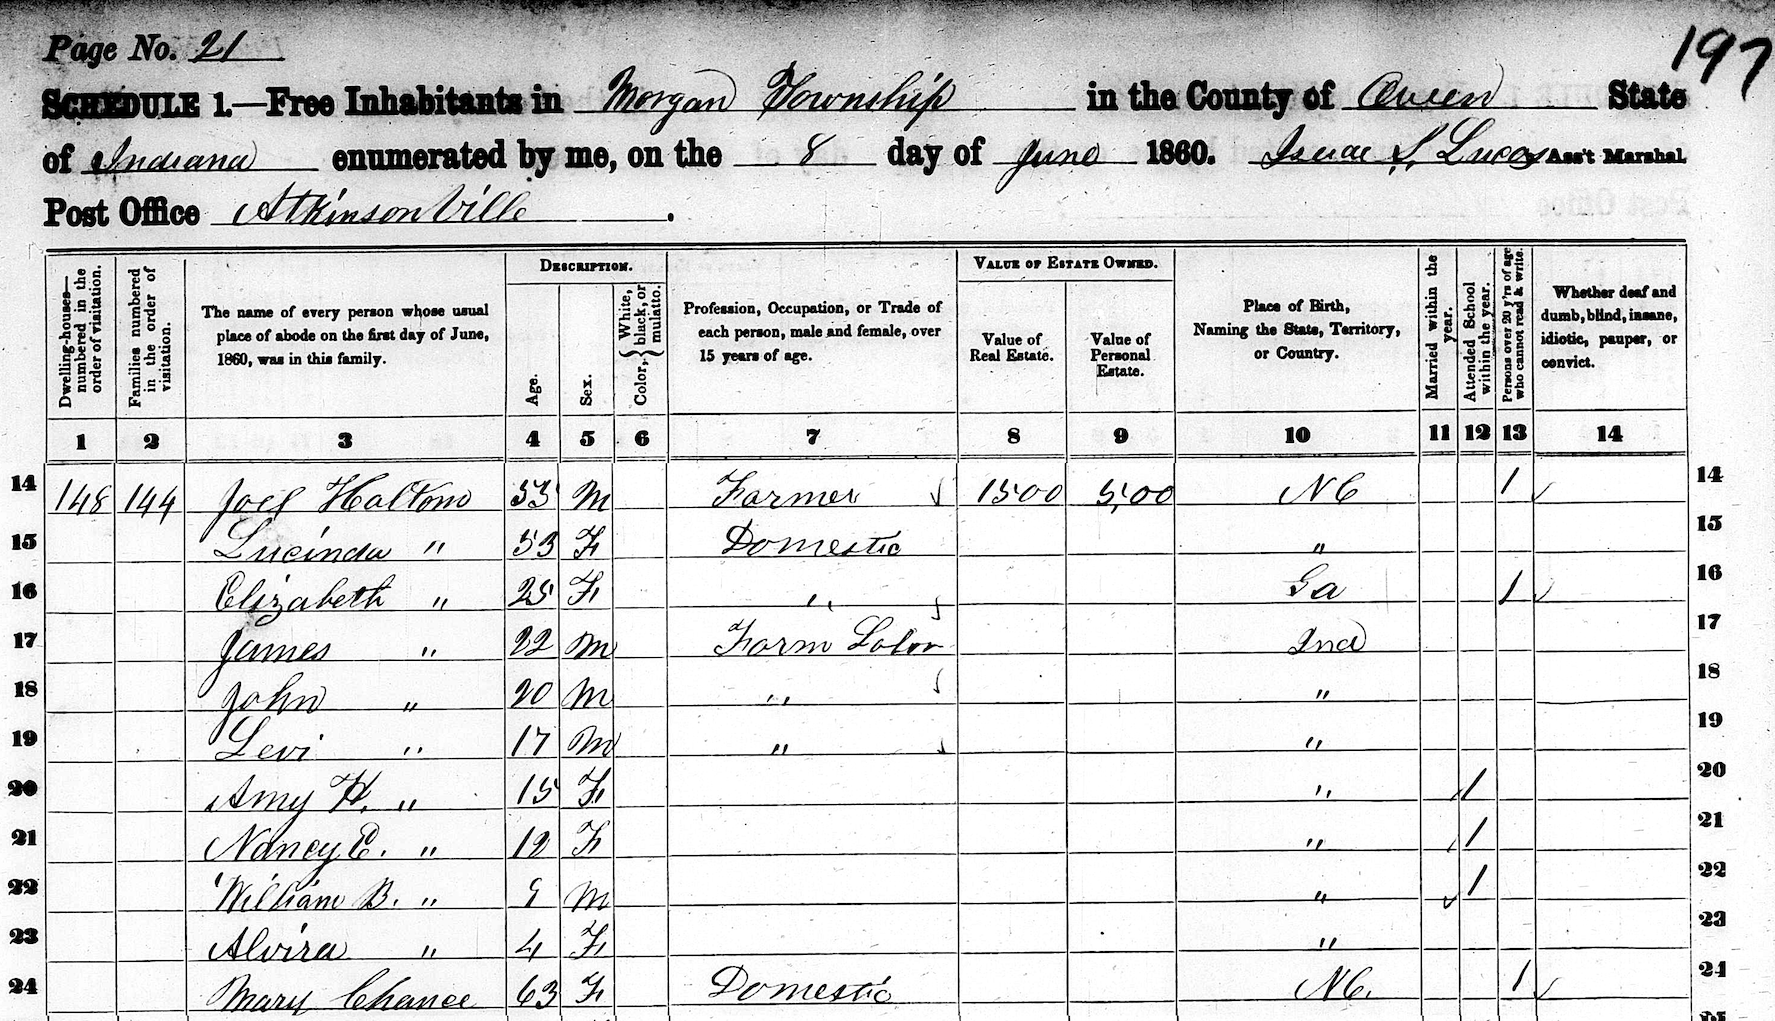 Page No. 21
197
SCHEDULE 1.—Free Inhabitants in Morgan Township in the County of Owen State
of Indiana enumerated by me, on the 8 day of June 1860. Isaac S. Lucas Ass't Marshal
Post Office Atkinsonville.
Dwelling-houses—numbered in the order of visitation.
Families numbered in the order of visitation.
The name of every person whose usual place of abode on the first day of June, 1860, was in this family.
DESCRIPTION.
Age.
Sex.
Color, { White, black, or mulatto.
Profession, Occupation, or Trade of each person, male and female, over 15 years of age.
VALUE OF ESTATE OWNED.
Value of Real Estate.
Value of Personal Estate.
Place of Birth, Naming the State, Territory, or Country.
Married within the year.
Attended School within the year.
Persons over 20 y'rs of age who cannot read & write.
Whether deaf and dumb, blind, insane, idiotic, pauper, or convict.
1 2 3 4 5 6 7 8 9 10 11 12 13 14
14 148 144 Joel Haltom 53 M Farmer 1500 500 NC 1 14
15 Lucinda " 53 F Domestic " 15
16 Elizabeth " 25 F " Ga 1 16
17 James " 22 M Farm Labor Ind 17
18 John " 20 M " " 18
19 Levi " 17 M " " 19
20 Amy H. " 15 F " 1 20
21 Nancy E. " 12 F " 1 21
22 William B. " 9 M " 1 22
23 Alvira " 4 F " 23
24 Mary Chance 63 F Domestic NC. 1 24